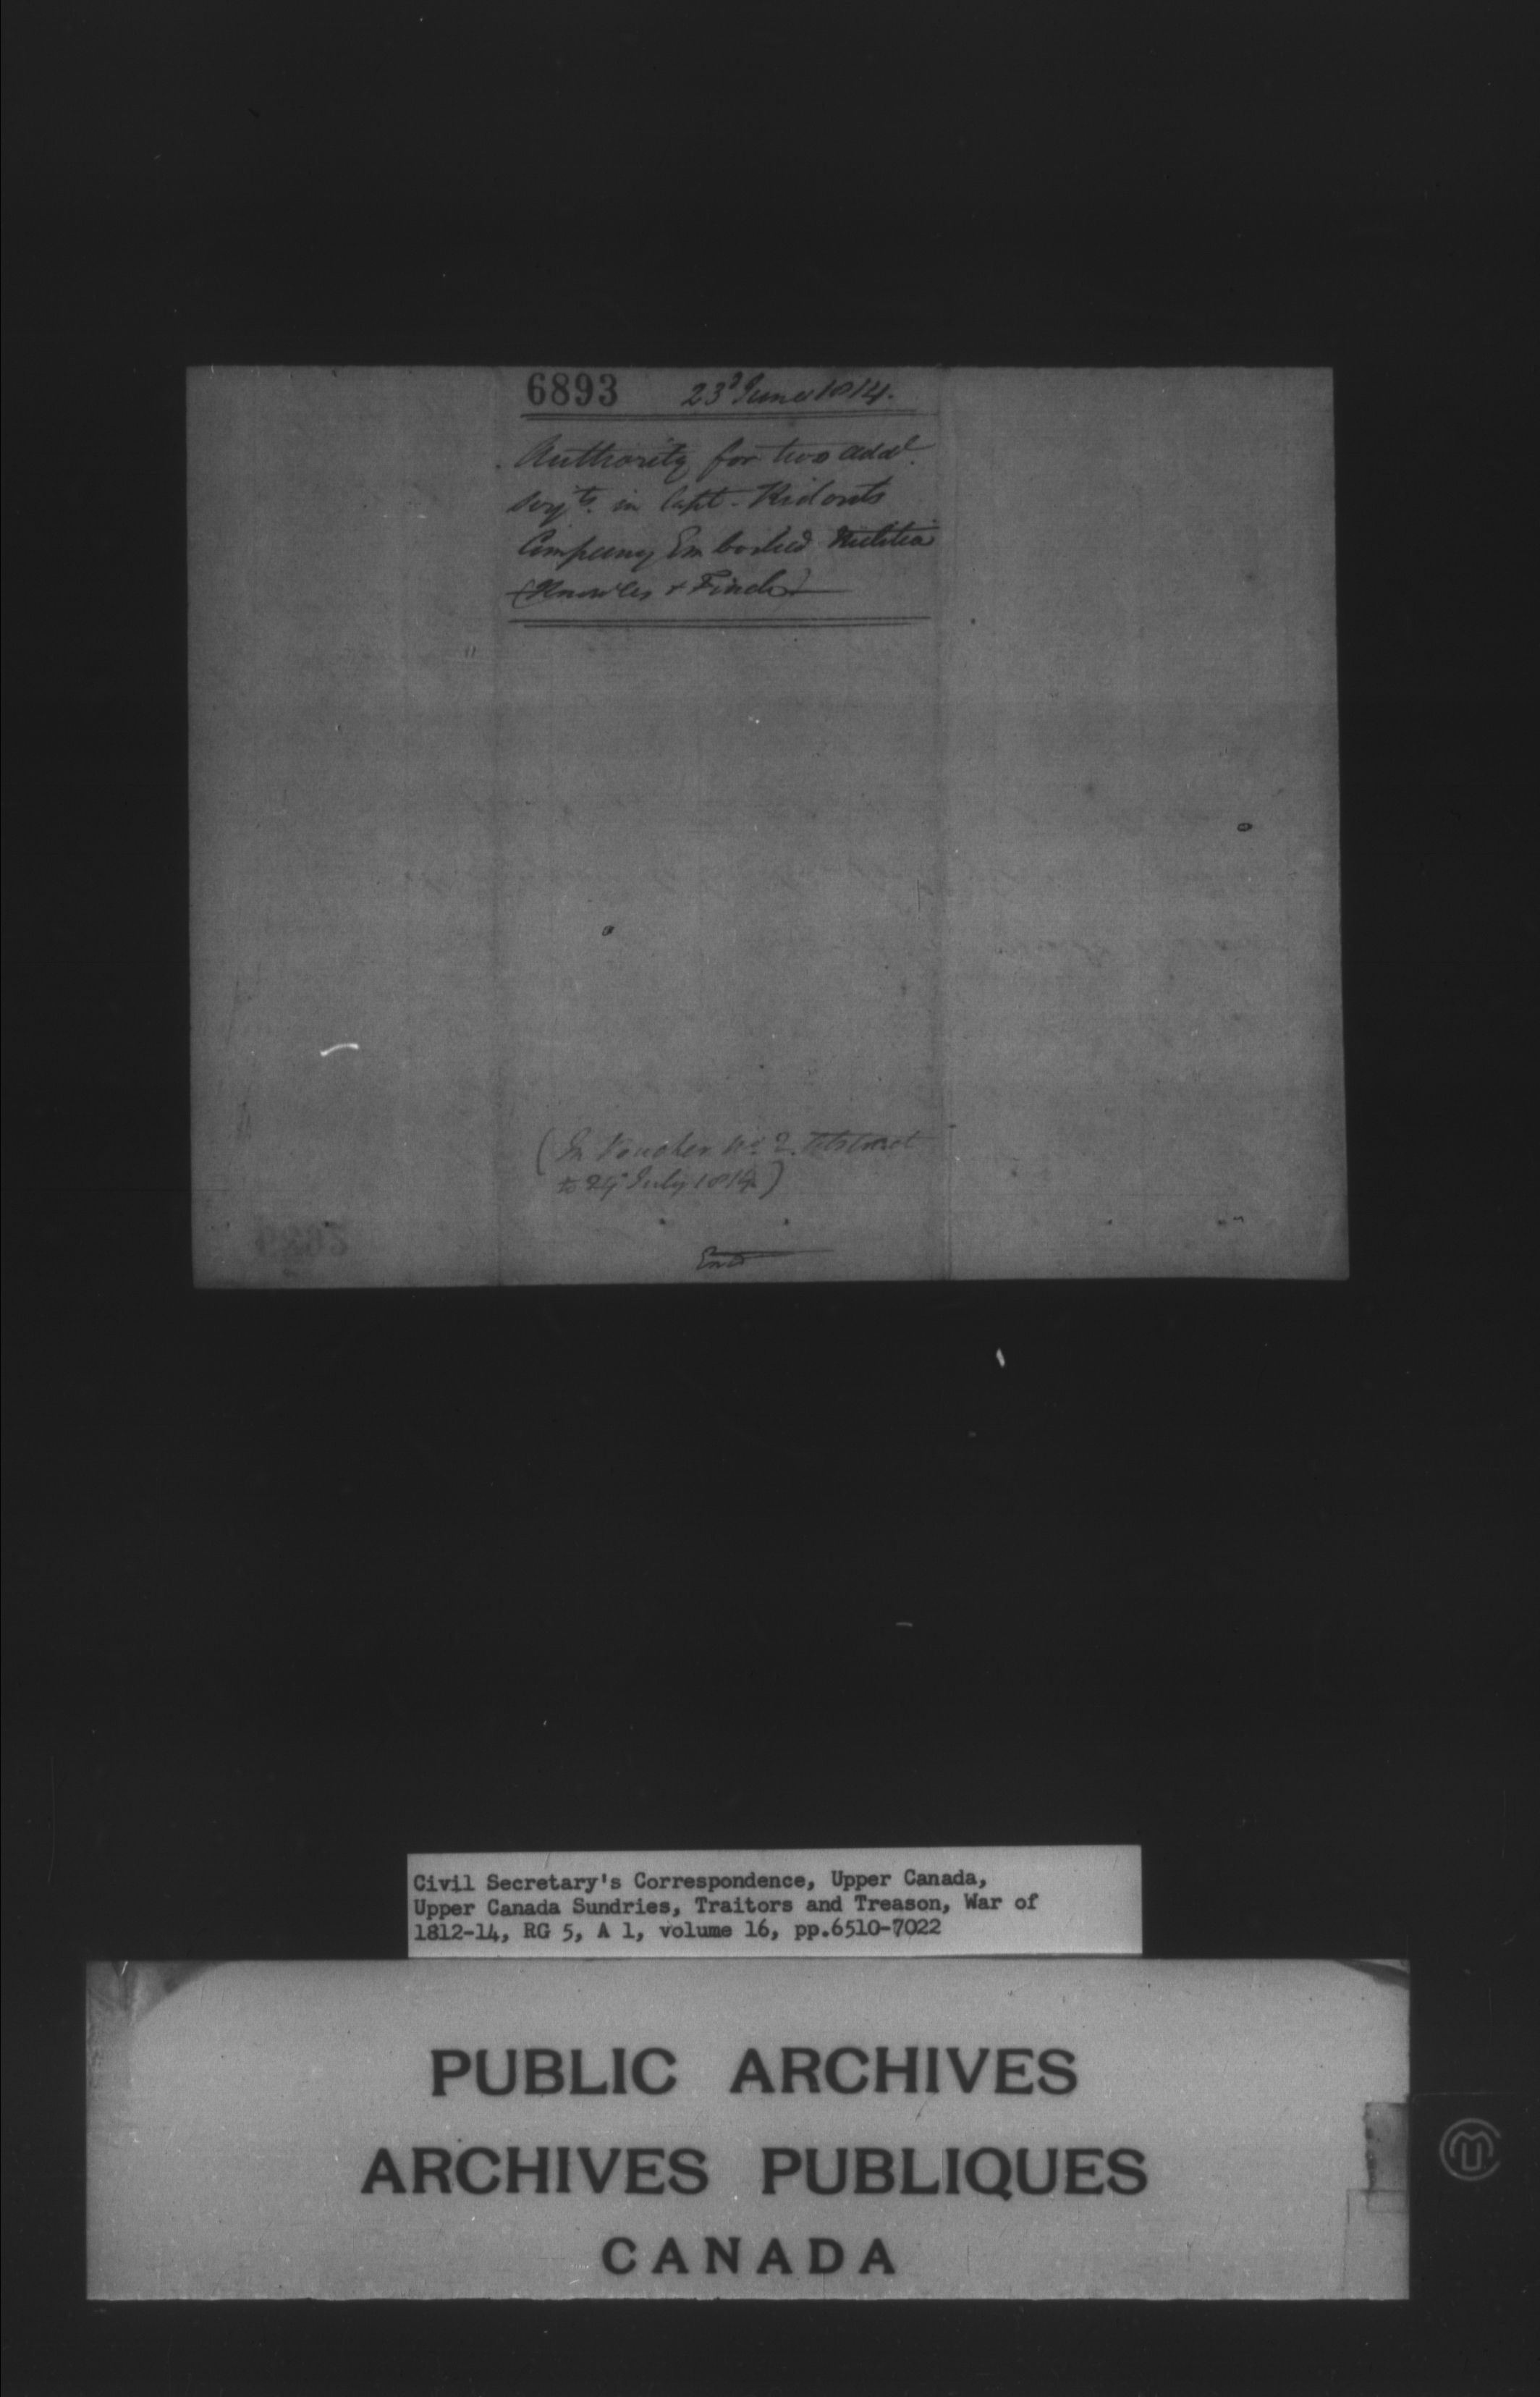 6893 23d June 1814.
Authority for two addl.
Serjts. in Capt. Ridouts
Company Embodied Militia
(Knowles & Finch)
(In Voucher No. 2. Abstract
to 24 July 1814)
Civil Secretary's Correspondence, Upper Canada,
Upper Canada Sundries, Traitors and Treason, War of
1812-14, RG 5, A 1, volume 16, pp.6510-7022
PUBLIC ARCHIVES
ARCHIVES PUBLIQUES
CANADA